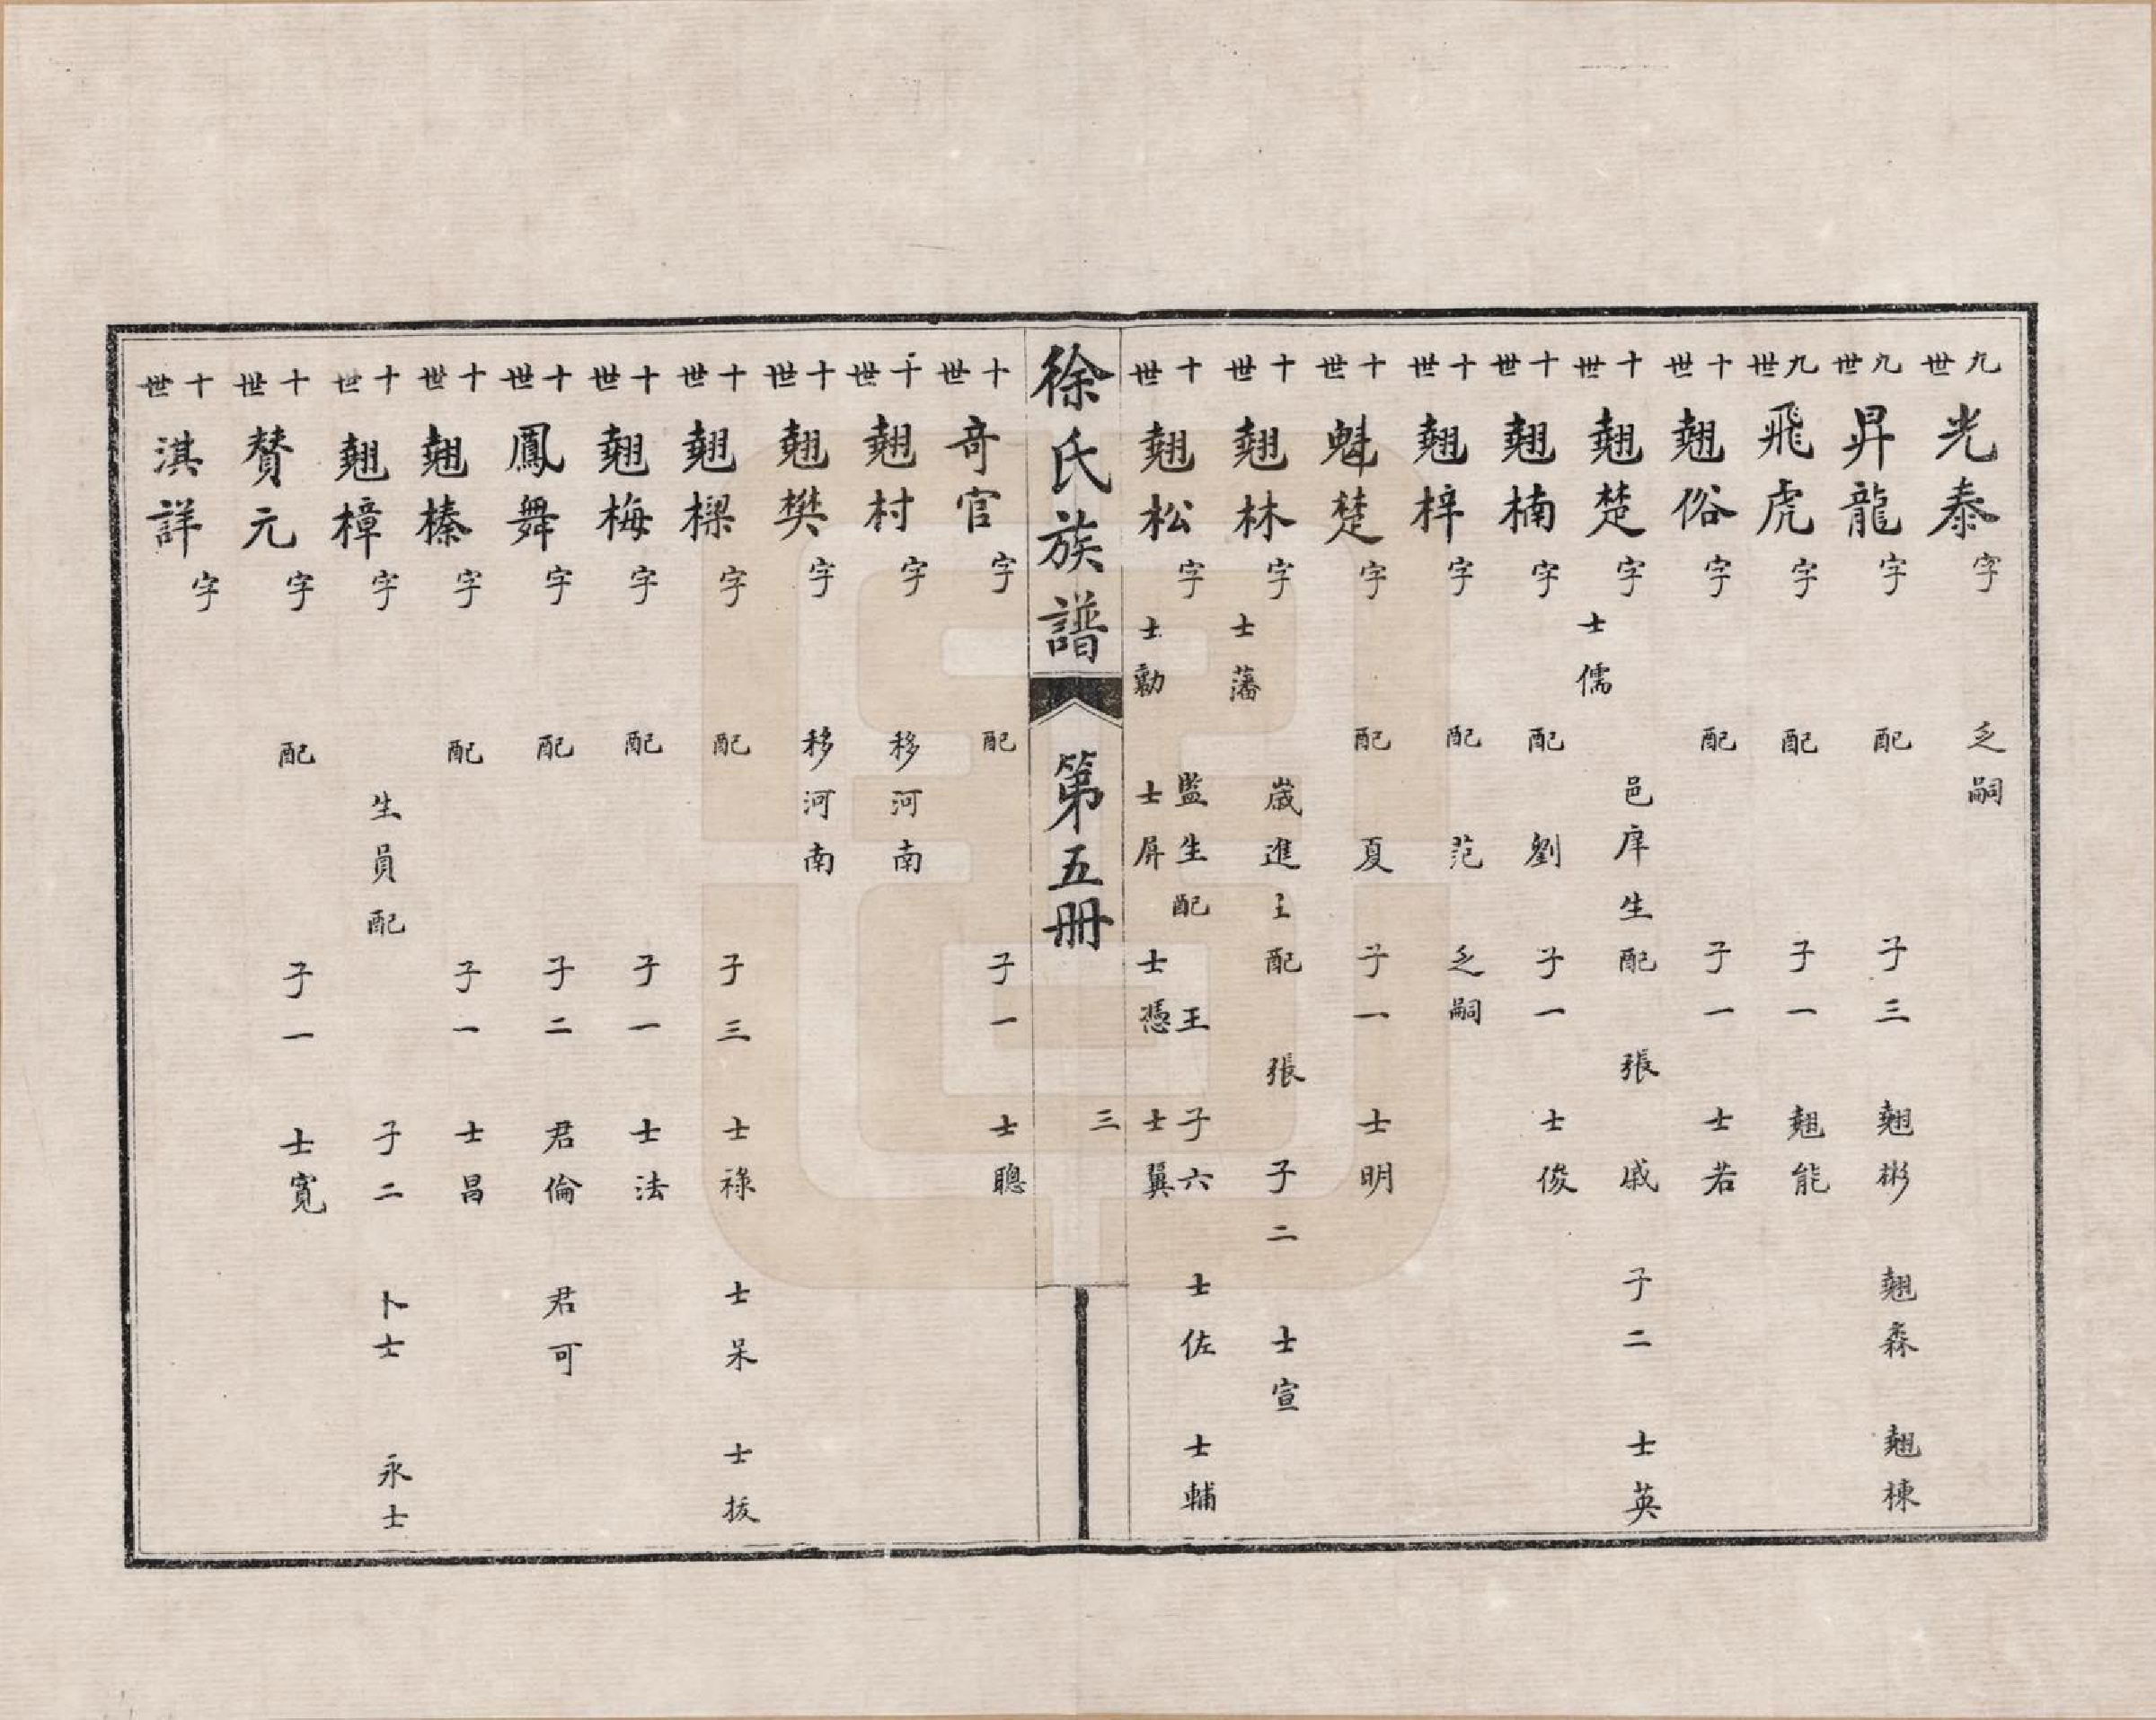 九世 光泰 字 乏嗣
九世 昇龍 字 配 子三 翹彬 翹森 翹棟
九世 飛虎 字 配 子一 翹能
十世 翹俗 字 配 子一 士若
十世 翹楚 字 邑庠生 配 張 戚 子二 士英
士儒
十世 翹楠 字 配 劉 子一 士俊
十世 翹梓 字 配 范 乏嗣
十世 魁楚 字 配 夏 子一 士明
十世 翹林 字 歲進士 配 張 子二 士宣
士藩
十世 翹松 字 監生 配 王 子六 士佐 士輔
士勷 士屏 士憑 士翼
徐氏族譜 第五冊 三
十世 奇官 字 配 子一 士聰
十世 翹村 字 移河南
十世 翹樊 字 移河南
十世 翹樑 字 配 子三 士祿 士呆 士拔
十世 翹梅 字 配 子一 士法
十世 鳳舞 字 配 子二 君倫 君可
十世 翹榛 字 配 子一 士昌
十世 翹樟 字 生員 配 子二 卜士 永士
十世 賛元 字 配 子一 士寬
十世 淇詳 字